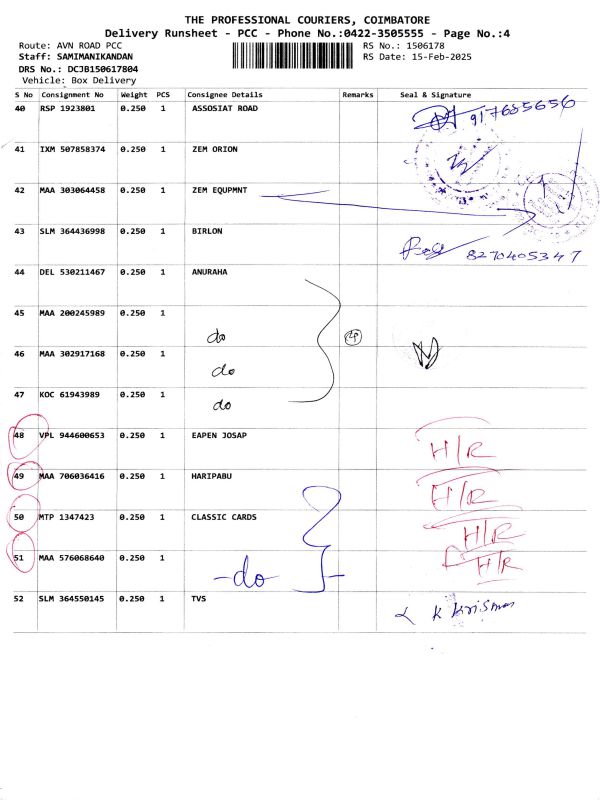 THE PROFESSIONAL COURIERS, COIMBATORE
Delivery Runsheet - PCC - Phone No.:0422-3505555 - Page No.:4
Route: AVN ROAD PCC
RS No.: 1506178
Staff: SAMIMANIKANDAN
RS Date: 15-Feb-2025
DRS No.: DCJB150617804
Vehicle: Box Delivery
S No Consignment No Weight PCS Consignee Details Remarks Seal & Signature
40 RSP 1923801 0.250 1 ASSOSIAT ROAD 917685656
41 IXM 507858374 0.250 1 ZEM ORION
42 MAA 303064458 0.250 1 ZEM EQUPMNT
43 SLM 364436998 0.250 1 BIRLON
8270405347
44 DEL 530211467 0.250 1 ANURAHA
45 MAA 200245989 0.250 1
do
46 MAA 302917168 0.250 1
do
47 KOC 61943989 0.250 1
do
48 VPL 944600653 0.250 1 EAPEN JOSAP H/R
49 MAA 706036416 0.250 1 HARIPABU H/R
50 MTP 1347423 0.250 1 CLASSIC CARDS H/R
51 MAA 576068640 0.250 1 -do- H/R
52 SLM 364550145 0.250 1 TVS